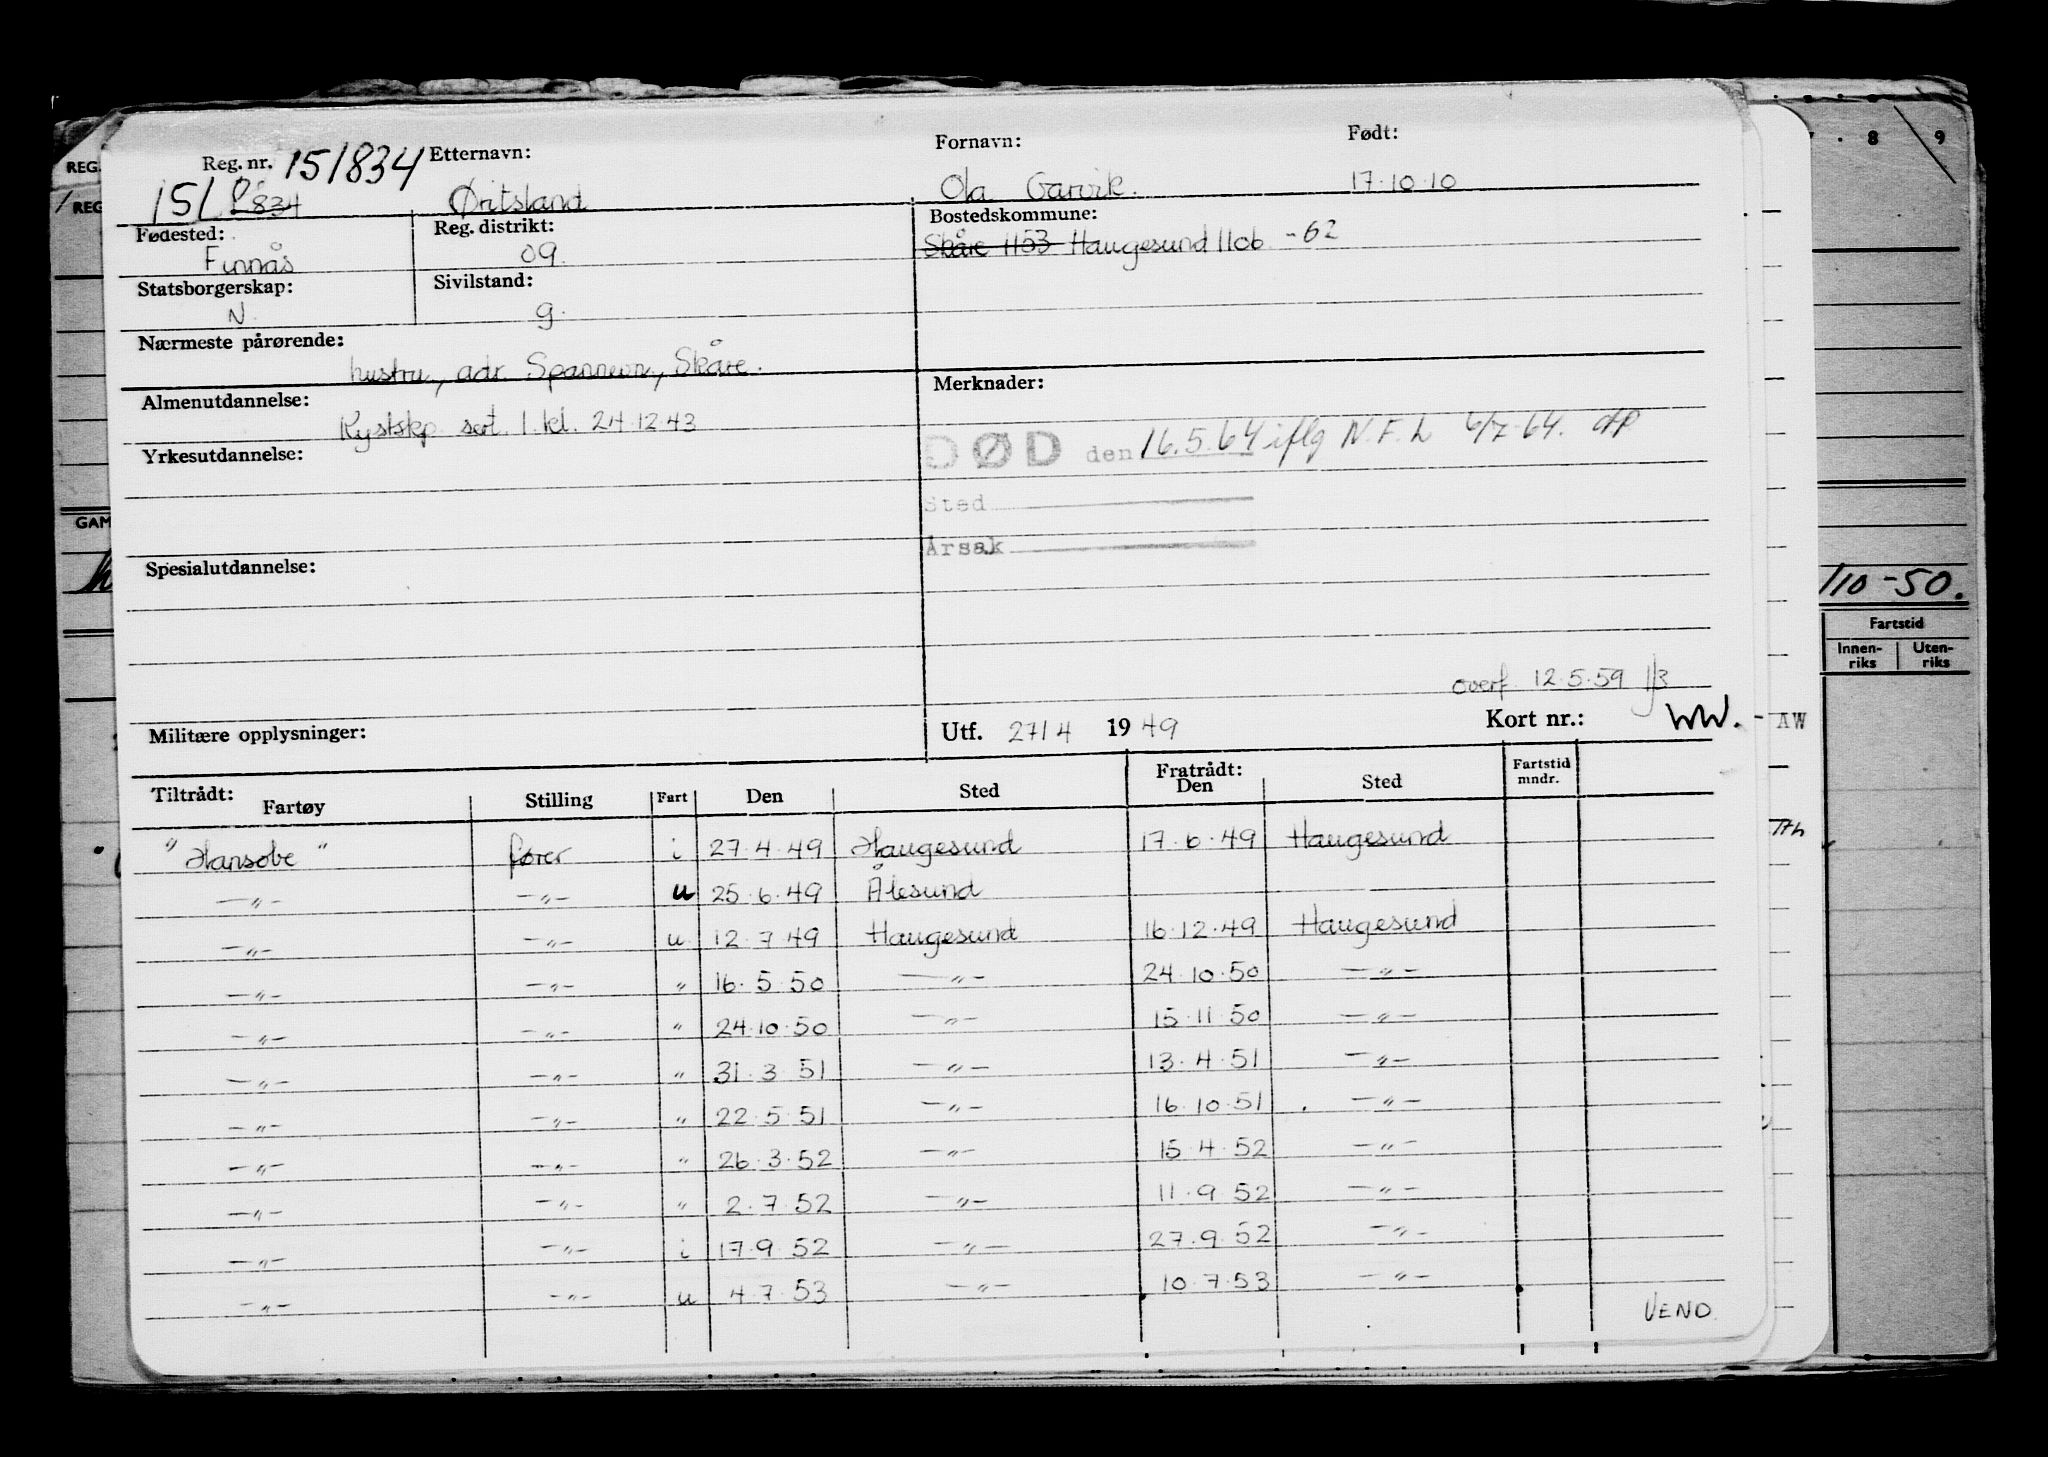 Reg. nr. 151834 Etternavn: Fornavn: Født:
151 834 Øritsland Ola Garvik. 17.10.10
Fødested: Reg. distrikt: Bostedskommune:
Finnås 09. Skåre 1153 Haugesund 1106 -62
Statsborgerskap: Sivilstand:
N. g.
Nærmeste pårørende:
hustru, adr. Spannevn, Skåre.
Almenutdannelse: Merknader:
Kystskp. sert. 1. kl. 24.12.43
Yrkesutdannelse: DØD den 16.5.64 iflg N.F.L 6/7-64.
Sted
Årsak
Spesialutdannelse:
overf. 12.5.59
Militære opplysninger: Utf. 27/4 1949 Kort nr.: WW. - AW
Tiltrådt: Fratrådt: Fartstid
Fartøy Stilling Fart Den Sted Den Sted mndr.
"Hansobe" fører i 27.4.49 Haugesund 17.6.49 Haugesund
—"— —"— u 25.6.49 Ålesund
—"— —"— u 12.7.49 Haugesund 16.12.49 Haugesund
—"— —"— " 16.5.50 —"— 24.10.50 —"—
—"— —"— " 24.10.50 —"— 15.11.50 —"—
—"— —"— " 31.3.51 —"— 13.4.51 —"—
—"— —"— " 22.5.51 —"— 16.10.51 —"—
—"— —"— " 26.3.52 —"— 15.4.52 —"—
—"— —"— " 2.7.52 —"— 11.9.52 —"—
—"— —"— i 17.9.52 —"— 27.9.52 —"—
—"— —"— u 4.7.53 —"— 10.7.53 —"—
VEND.
REG.
REG
GAM
8 9
110-50.
Fartstid
Innen-riks Uten-riks